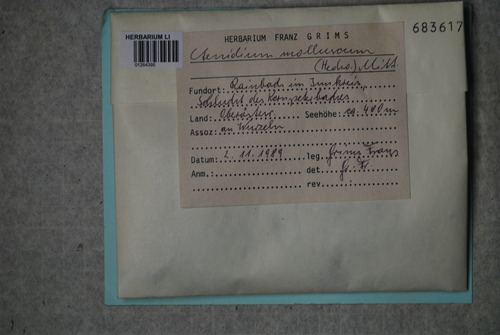 HERBARIUM LI
683617
HERBARIUM FRANZ GRIMS
Ctenidium molluscum
(Hedw.) Mitt
Fundort: Rainbach im Innkreis,
Schlucht des
Land: Oberösterr. Seehöhe: ca. 400 m
Assoz: an Wurzeln
Datum: 2. 11. 1989 leg. Grims Franz
Anm.: det. Gr. F.
rev.